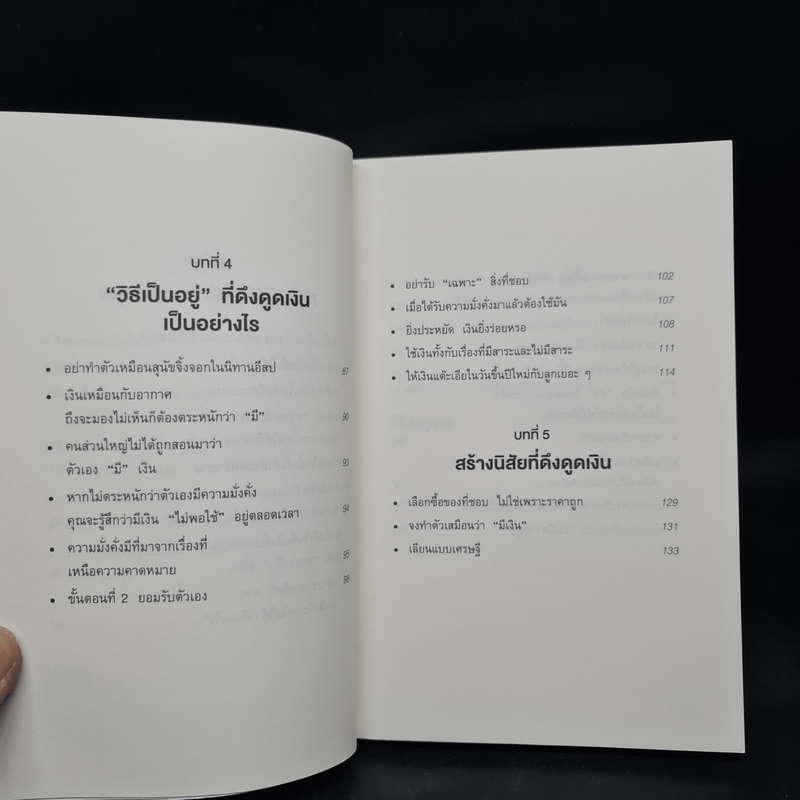 บทที่ 4
“วิธีเป็นอยู่” ที่ดึงดูดเงิน
เป็นอย่างไร
• อย่าทำตัวเหมือนสุนัขจิ้งจอกในนิทานอีสป 87
• เงินเหมือนกับอากาศ
ถึงจะมองไม่เห็นก็ต้องตระหนักว่า “มี” 90
• คนส่วนใหญ่ไม่ได้ถูกสอนมาว่า
ตัวเอง “มี” เงิน 93
• หากไม่ตระหนักว่าตัวเองมีความมั่งคั่ง
คุณจะรู้สึกว่ามีเงิน “ไม่พอใช้” อยู่ตลอดเวลา 94
• ความมั่งคั่งมีที่มาจากเรื่องที่
เหนือความคาดหมาย 95
• ขั้นตอนที่ 2 ยอมรับตัวเอง 98
• อย่ารับ “เฉพาะ” สิ่งที่ชอบ 102
• เมื่อได้รับความมั่งคั่งมาแล้วต้องใช้มัน 107
• ยิ่งประหยัด เงินยิ่งร่อยหรอ 108
• ใช้เงินทั้งกับเรื่องที่มีสาระและไม่มีสาระ 111
• ให้เงินแต๊ะเอียในวันขึ้นปีใหม่กับลูกเยอะ ๆ 114
บทที่ 5
สร้างนิสัยที่ดึงดูดเงิน
• เลือกซื้อของที่ชอบ ไม่ใช่เพราะราคาถูก 129
• จงทำตัวเสมือนว่า “มีเงิน” 131
• เลียนแบบเศรษฐี 133